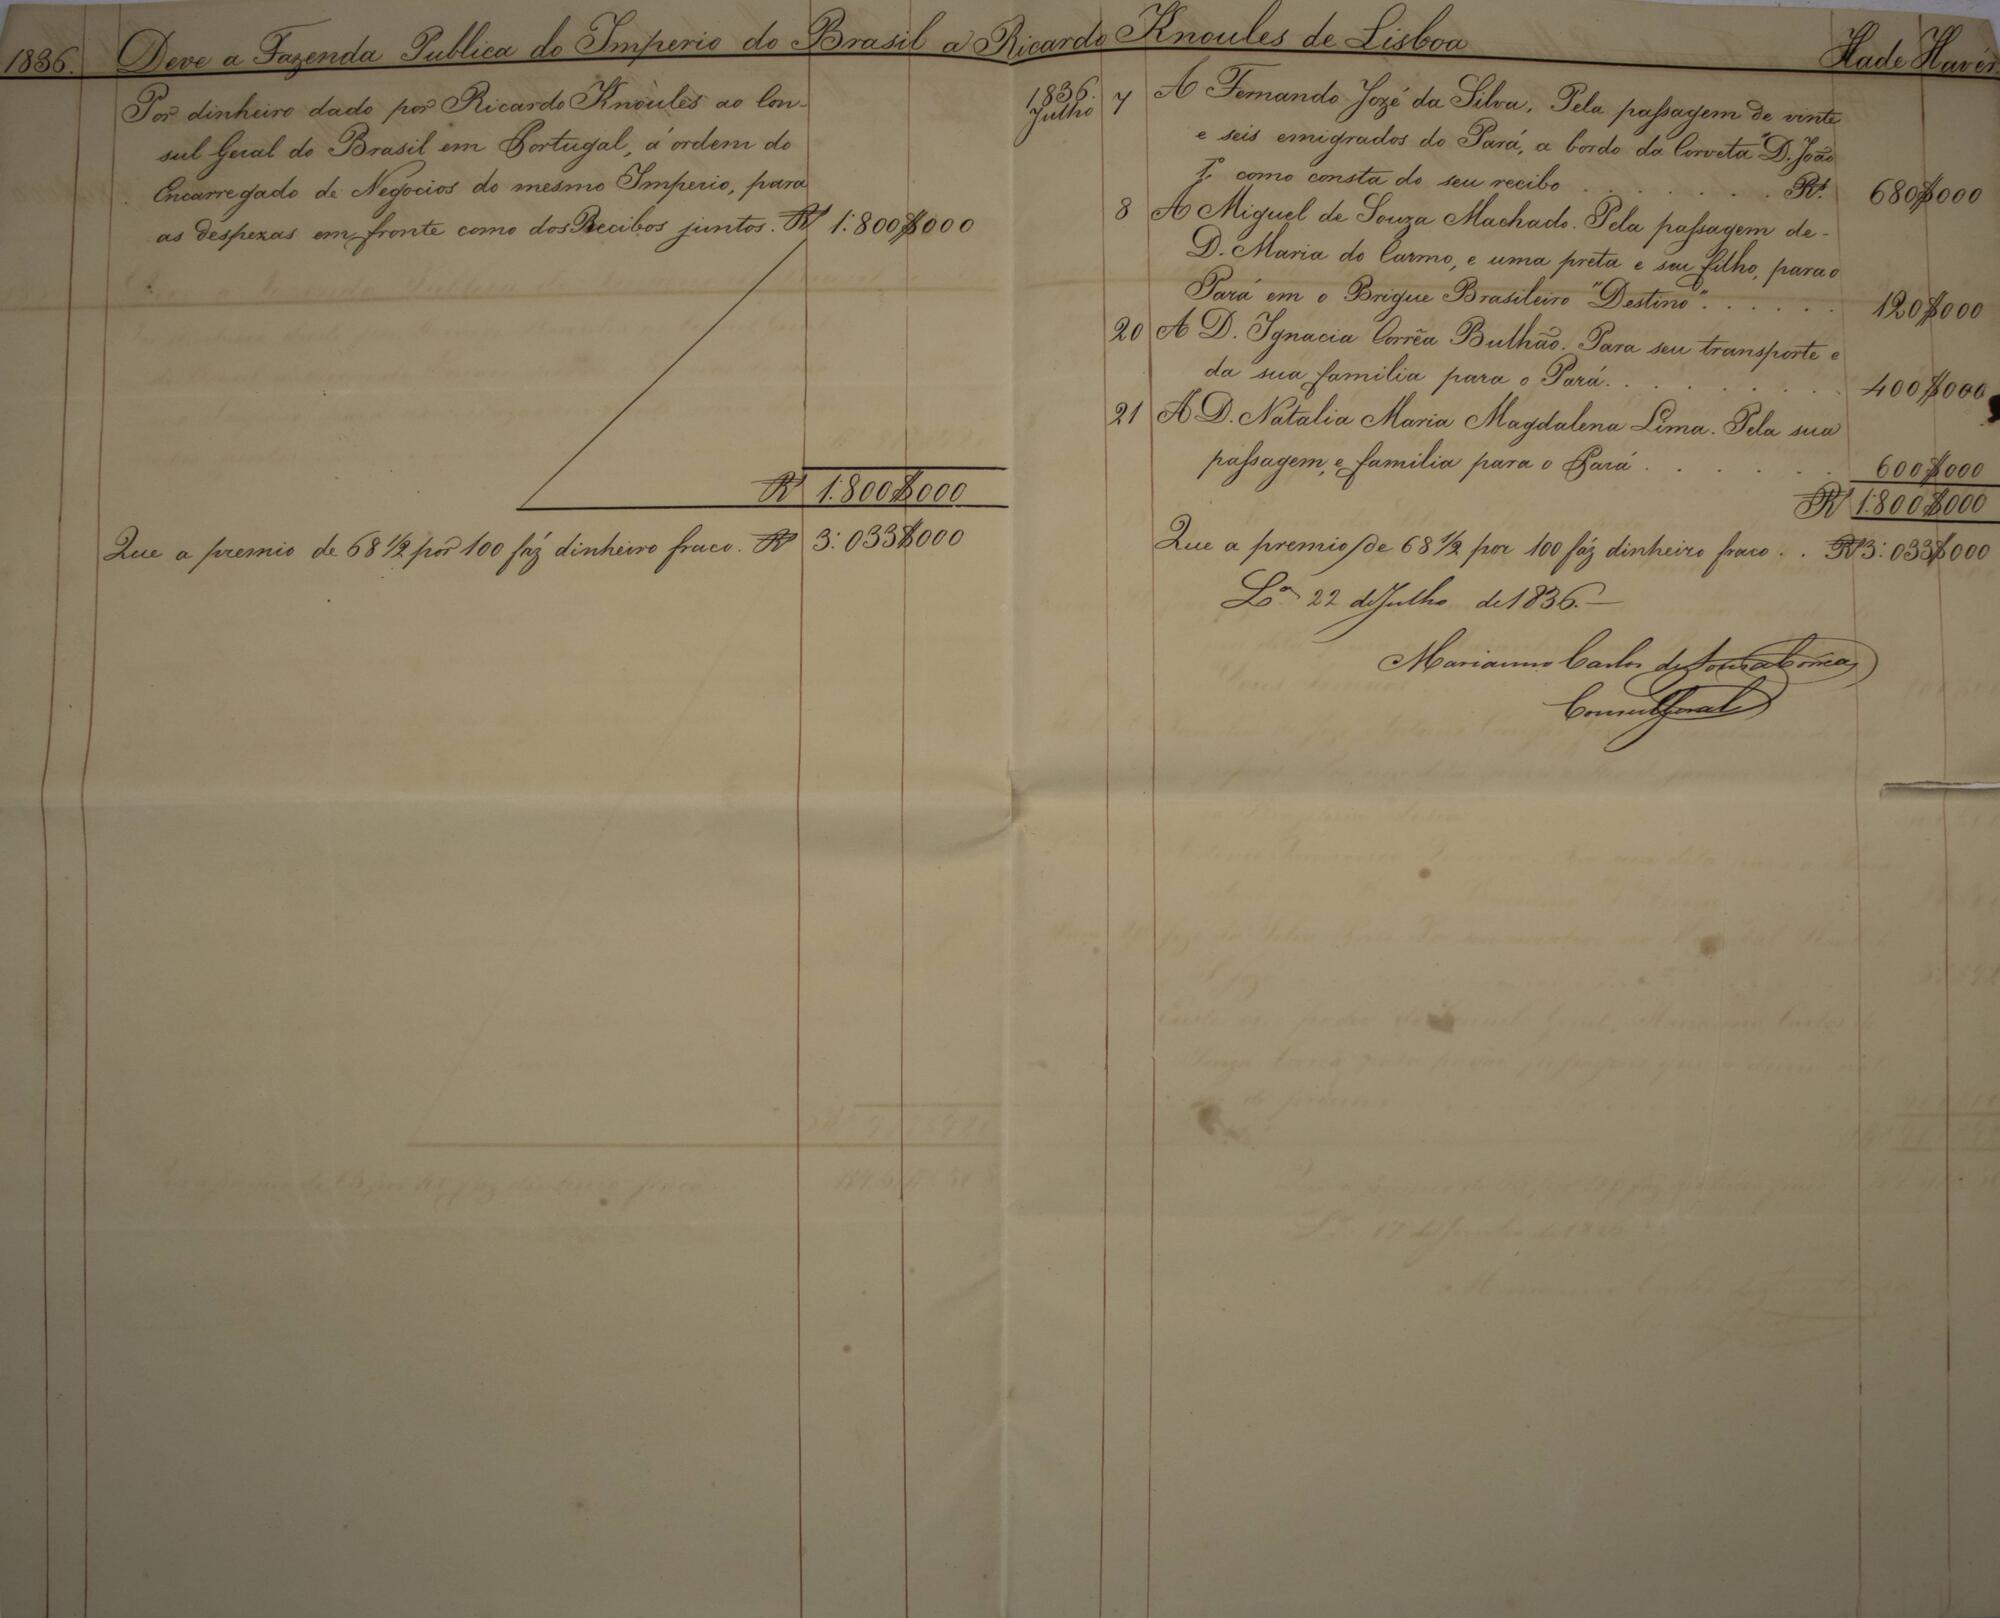 1836. Deve a Fazenda Publica do Imperio do Brasil a Ricardo Knoules de Lisboa Hade Havêr
Por dinheiro dado por Ricardo Knoules ao Con-
sul Geral do Brasil em Portugal, á ordem do
Encarregado de Negocios do mesmo Imperio, para
as despezas em fronte como dos Recibos juntos. Rs 1:800$000
Rs 1:800$000
Que a premio de 68 1/2 por 100 fáz dinheiro fraco. Rs 3:033$000
1836.
Julho 7 A Fernando Jozé da Silva. Pela passagem de vinte
e seis emigrados do Pará, a bordo da Corveta "D. João
1º como consta do seu recibo . . . . . . . Rs. 680$000
8 A Miguel de Souza Machado. Pela passagem de-
D. Maria do Carmo, e uma preta e seu filho, para o
Pará em o Brigue Brasileiro "Destino" . . . . . . 120$000
20 A D. Ignacia Corrêa Bulhão. Para seu transporte e
da sua familia para o Pará. . . . . . . . 400$000
21 A D. Natalia Maria Magdalena Lima. Pela sua
passagem, e familia para o Pará . . . . . 600$000
Rs 1:800$000
Que a premio de 68 1/2 por 100 fáz dinheiro fraco . . Rs 3:033$000
Lxa 22 de Julho de 1836.—
Marianno Carlos de Souza Corrêa
Consul Geral